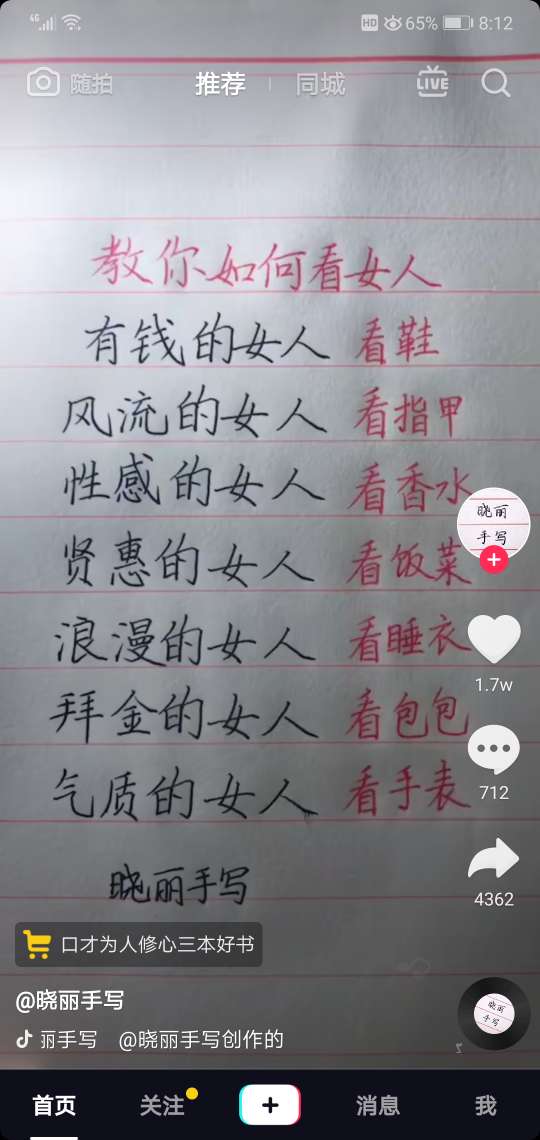 4G HD 65% 8:12
随拍 推荐 同城 LIVE
教你如何看女人
有钱的女人 看鞋
风流的女人 看指甲
性感的女人 看香水
贤惠的女人 看饭菜
浪漫的女人 看睡衣
拜金的女人 看包包
气质的女人 看手表
晓丽手写
晓丽
手写
1.7w
712
4362
口才为人修心三本好书
@晓丽手写
丽手写 @晓丽手写创作的
晓丽
手写
首页 关注 消息 我